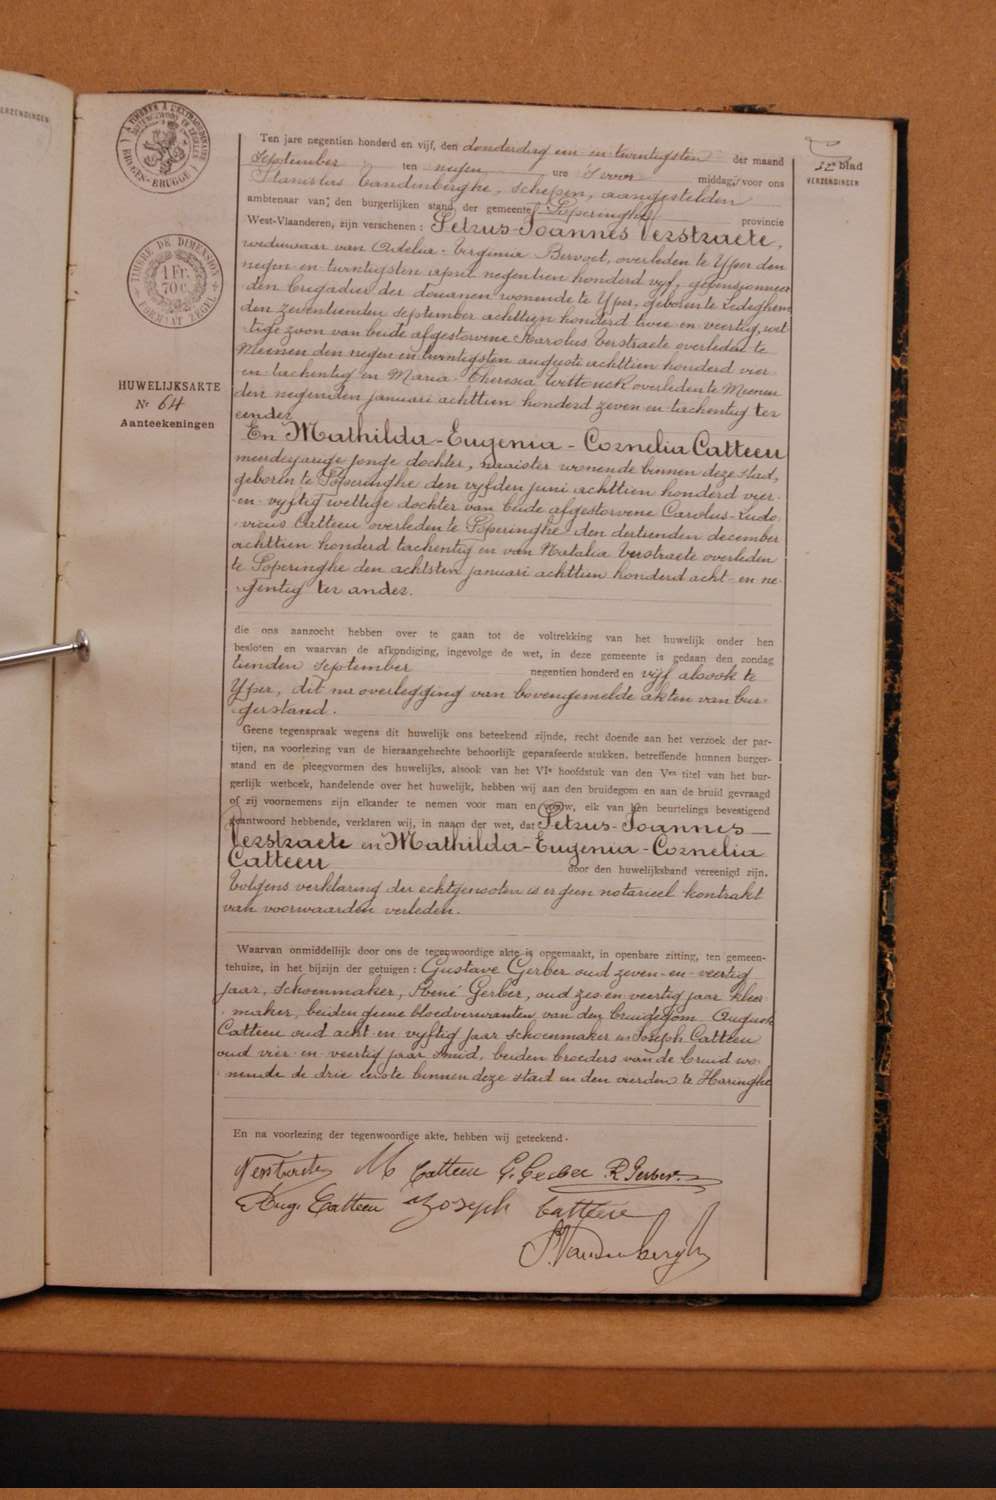 VERZENDINGEN
A TIMBRER A L'EXTRAORDINAIRE
BUITENGEWOON TE ZEGELEN
BRUGES-BRUGGE
TIMBRE DE DIMENSION
1 Fr.
70 C.
FORMAAT ZEGEL
HUWELIJKSAKTE
Nr 64
Aanteekeningen
blad
VERZENDINGEN
Ten jare negentien honderd en vijf, den donderdag een en twintigsten der maand
September ten negen ure voor middag, voor ons
Stanislas Vandenberghe, schepen, aangestelden
ambtenaar van den burgerlijken stand der gemeente Poperinghe provincie
West-Vlaanderen, zijn verschenen : Petrus-Joannes Verstraete,
weduwaar van Adelia-Virginia Bervoet, overleden te Yper den
negen en twintigsten april negentien honderd vyf, gepensionneer
den brigadier der douanen wonende te Yper, geboren te Ledeghem
den zeventienden september achttien honderd twee en veertig, wet
tige zoon van beide afgestorvene Karolus Verstraete overleden te
Meenen den negen en twintigsten augusti achttien honderd vier
en tachentig en Maria-Theresia overleden te Meenen
den negenden januari achttien honderd zeven en tachentig ter
eender
En Mathilda-Eugenia-Cornelia Catteeu
meerderjarige jonge dochter, naaister wonende binnen deze stad,
geboren te Poperinghe den vyfden juni achttien honderd vier-
en-vyftig wettige dochter van beide afgestorvene Carolus-Ludo
vicus Catteeu overleden te Poperinghe den dertienden december
achttien honderd tachentig en van Natalia Verstraete overleden
te Poperinghe den achtsten januari achttien honderd acht-en ne-
gentig ter ander.
die ons aanzocht hebben over te gaan tot de voltrekking van het huwelijk onder hen
besloten en waarvan de afkondiging, ingevolge de wet, in deze gemeente is gedaan den zondag
tienden September negentien honderd en vijf alsook te
Yper, dit na overlegging van bovengemelde akten van bur-
gerstand.
Geene tegenspraak wegens dit huwelijk ons beteekend zijnde, recht doende aan het verzoek der par-
tijen, na voorlezing van de hieraangehechte behoorlijk geparafeerde stukken, betreffende hunnen burger-
stand en de pleegvormen des huwelijks, alsook van het VIe hoofdstuk van den Ven titel van het bur-
gerlijk wetboek, handelende over het huwelijk, hebben wij aan den bruidegom en aan de bruid gevraagd
of zij voornemens zijn elkander te nemen voor man en vrouw, elk van hen beurtelings bevestigend
geantwoord hebbende, verklaren wij, in naam der wet, dat Petrus-Joannes-
Verstraete en Mathilda-Eugenia-Cornelia
Catteeu door den huwelijksband vereenigd zijn.
Volgens verklaring der echtgenooten is er geen notarieel kontrakt
van voorwaarden verleden.
Waarvan onmiddellijk door ons de tegenwoordige akte is opgemaakt, in openbare zitting, ten gemeen-
tehuize, in het bijzijn der getuigen : Gustave Gerber oud zeven-en-veertig
jaar, schoenmaker, René Gerber, oud zes en veertig jaar kleer
maker, beiden geene bloedverwanten van den bruidegom August
Catteeu oud acht en vyftig jaar schoenmaker en Joseph Catteeu
oud vier en veertig jaar smid, beiden broeders van de bruid wo-
nende de drie eerste binnen deze stad en den vierden te Haringhe
En na voorlezing der tegenwoordige akte, hebben wij geteekend.
Verstraete M Catteeu G. Gerber R. Gerber.
Aug. Catteeu Jozoseph Catteeu
S. Vandenberghe